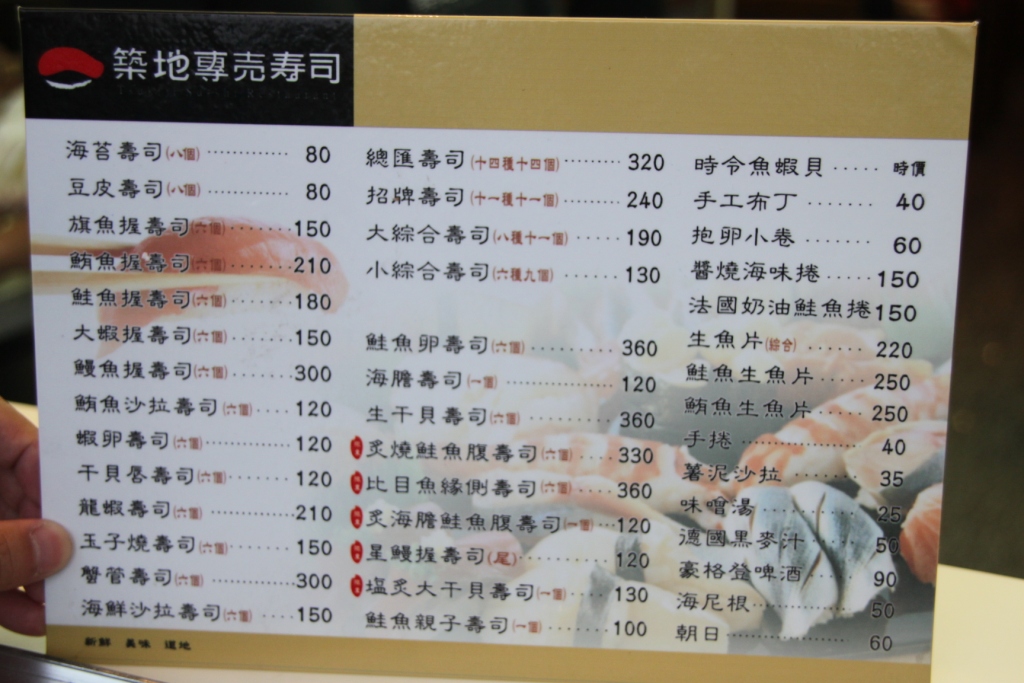 築地專売寿司
海苔壽司(八個) 80
豆皮壽司(八個) 80
旗魚握壽司(六個) 150
鮪魚握壽司(六個) 210
鮭魚握壽司(六個) 180
大蝦握壽司(六個) 150
鰻魚握壽司(六個) 300
鮪魚沙拉壽司(六個) 120
蝦卵壽司(六個) 120
干貝唇壽司(六個) 120
龍蝦壽司(六個) 210
玉子燒壽司(六個) 150
蟹管壽司(六個) 300
海鮮沙拉壽司(六個) 150
總匯壽司(十四種十四個) 320
招牌壽司(十一種十一個) 240
大綜合壽司(八種十一個) 190
小綜合壽司(六種九個) 130
鮭魚卵壽司(六個) 360
海膽壽司(一個) 120
生干貝壽司(六個) 360
炙燒鮭魚腹壽司(六個) 330
比目魚緣側壽司(六個) 360
炙海膽鮭魚腹壽司(一個) 120
星鰻握壽司(尾) 120
塩炙大干貝壽司(一個) 130
鮭魚親子壽司(一個) 100
時令魚蝦貝 時價
手工布丁 40
抱卵小卷 60
醬燒海味捲 150
法國奶油鮭魚捲 150
生魚片(綜合) 220
鮭魚生魚片 250
鮪魚生魚片 250
手捲 40
薯泥沙拉 35
味噌湯 25
德國黑麥汁 50
豪格登啤酒 90
海尼根 50
朝日 60
新鮮 美味 道地